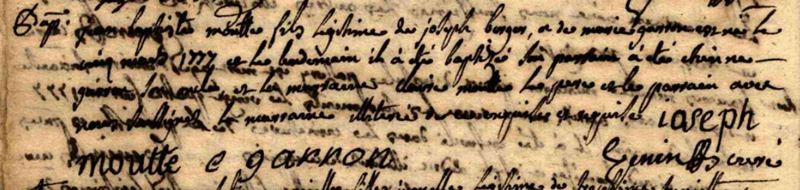 Bapt. Jean baptiste moutte fils legitime de joseph berger, et de marie garron est né le
cinq mars 1777 et le lendemain il à été baptisé son parrain à été etienne
garron son oncle et la marraine claire moutte le pere et le parrain avec
nous soussignés la marraine illiterée de ce enquise et requise ioseph
moutte e garron curé